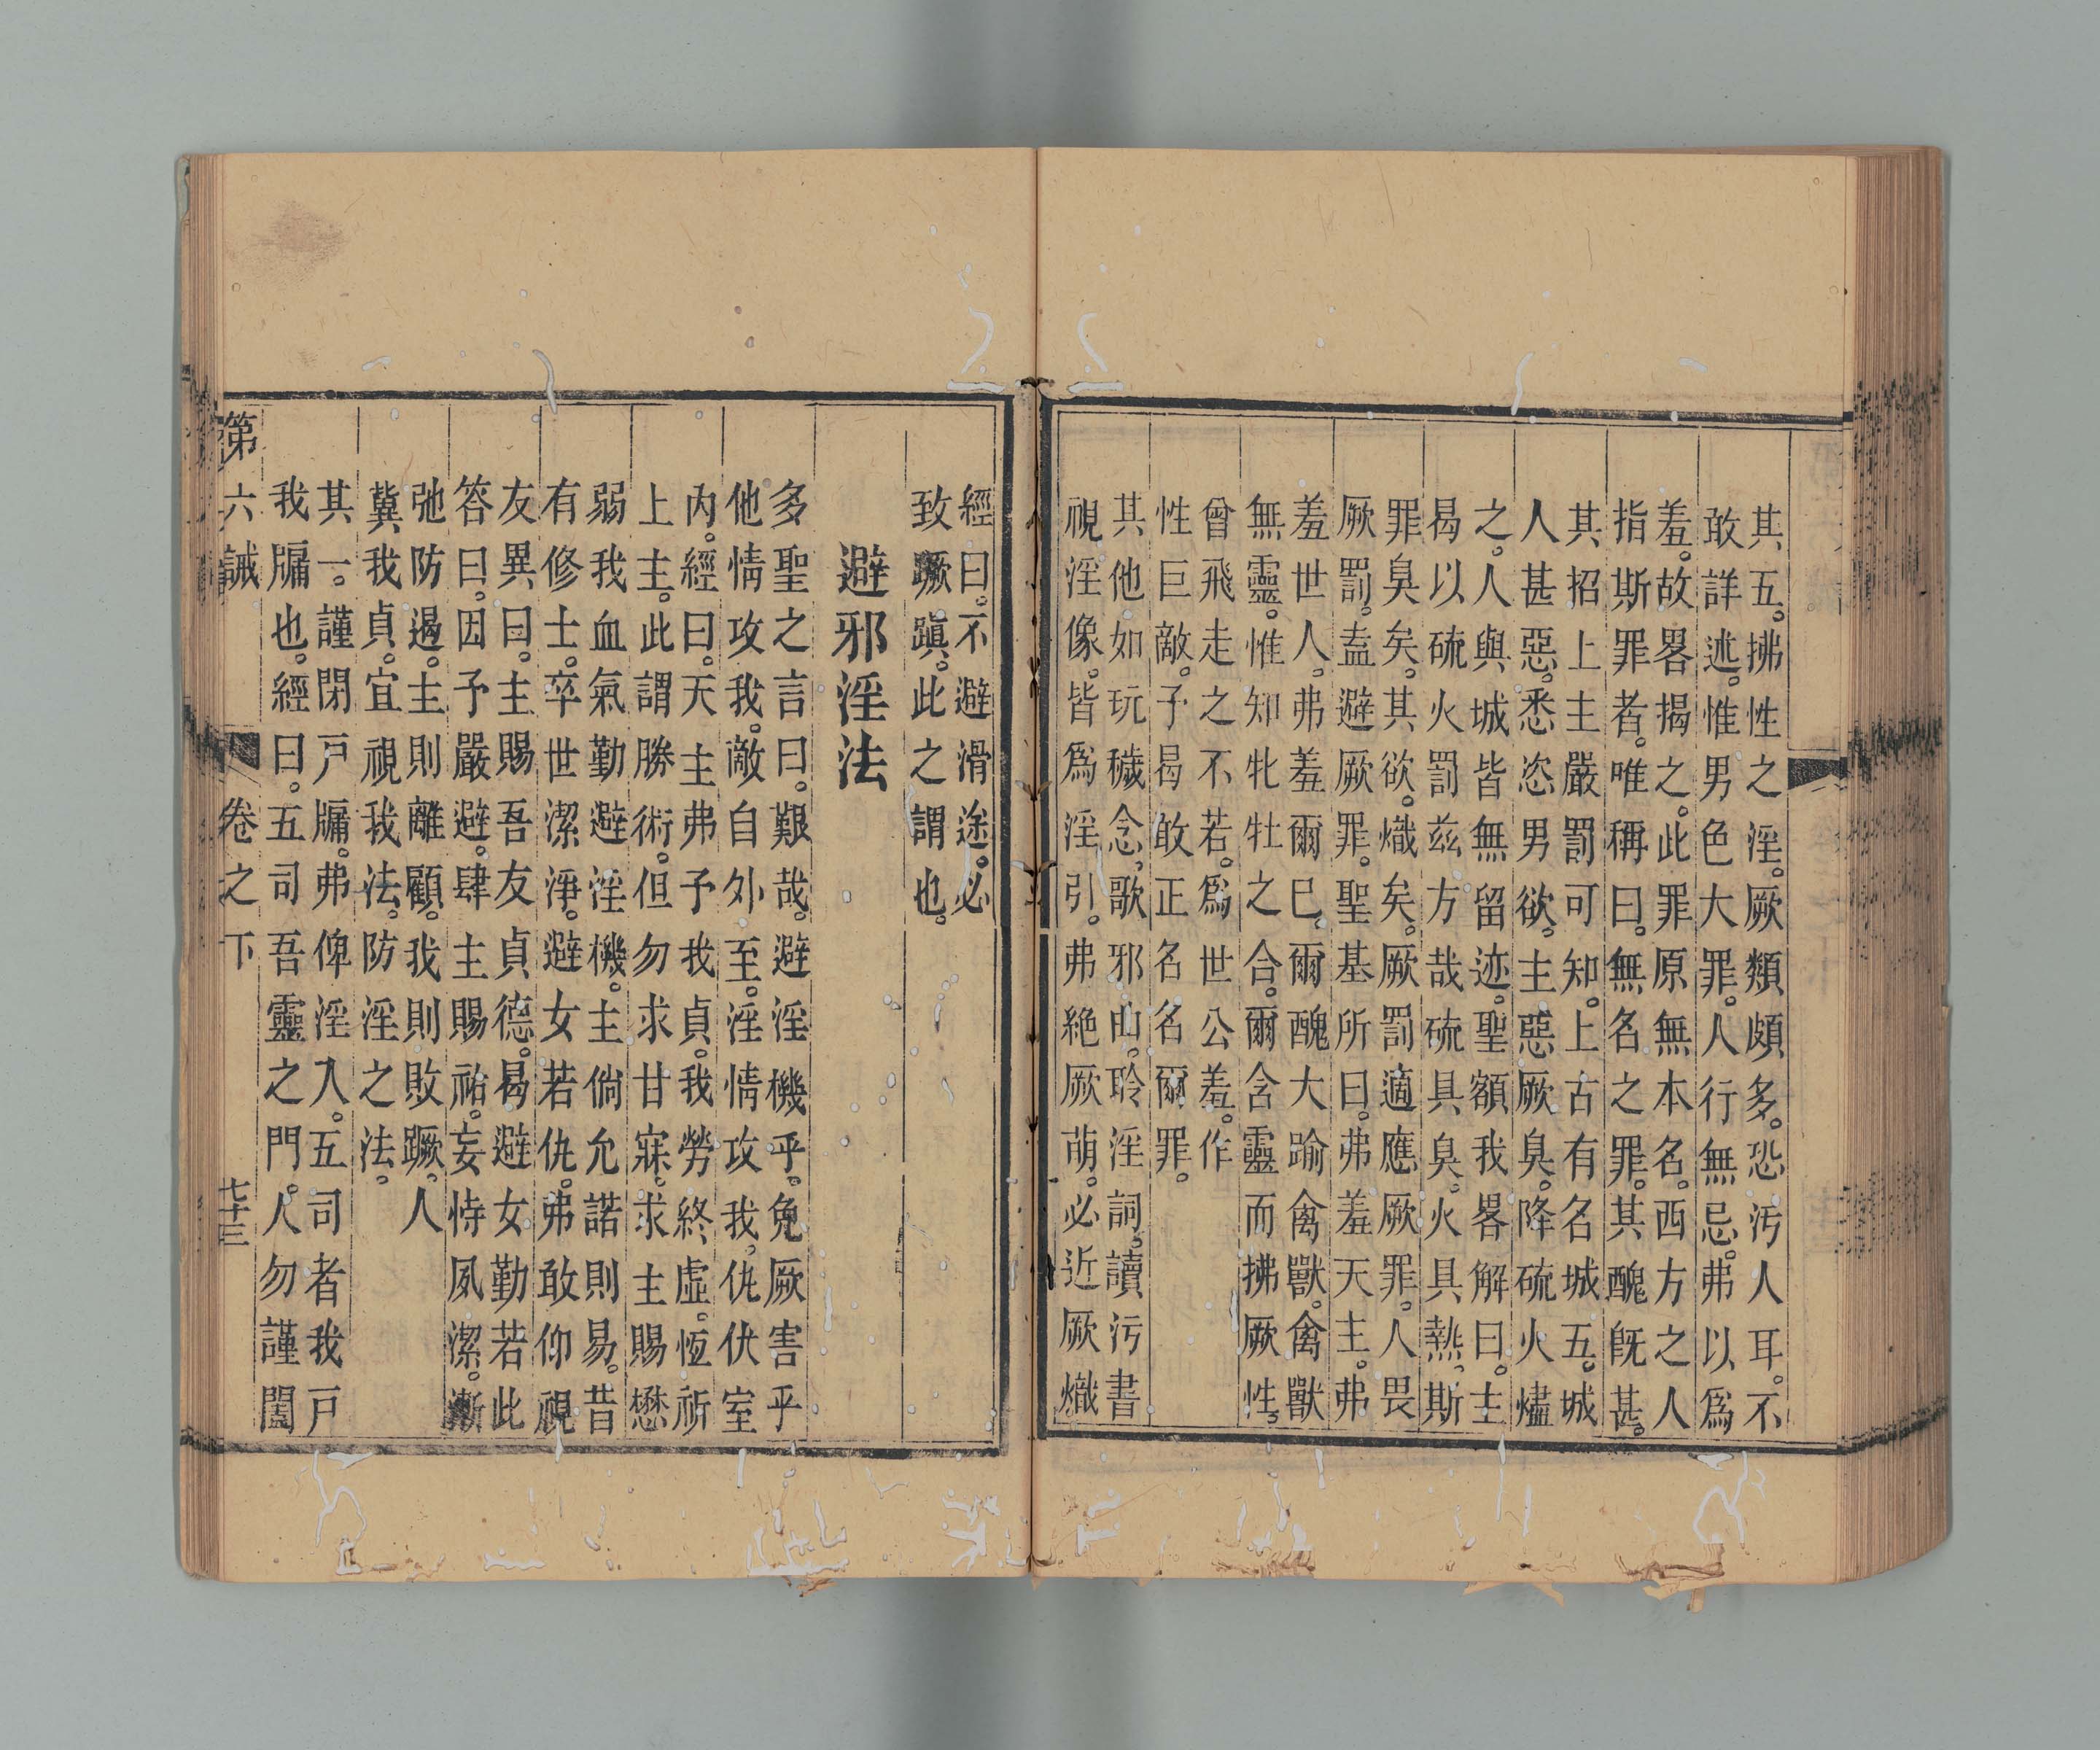 其五。拂性之淫。厥類頗多。恐污人耳。不
敢詳述。惟男色大罪。人行無忌。弗以爲
羞。故畧揭之。此罪原無本名。西方之人
指斯罪者。唯稱曰。無名之罪。其醜旣甚。
其招上主嚴罰可知。上古有名城五。城
人甚惡。悉恣男欲。主惡厥臭。降硫火燼
之。人與城皆無留迹。聖額我畧解曰。主
曷以硫火罰兹方哉。硫具臭。火具熱。斯
罪臭矣。其欲。熾矣。厥罰適應厥罪。人畏
厥罰。盍避厥罪。聖基所曰。弗羞天主。弗
羞世人。弗羞爾巳。爾醜大踰禽獸。禽獸
無靈。惟知牝牡之合。爾含靈而拂厥性。
曾飛走之不若。爲世公羞。作
性巨敵。予曷敢正名名爾罪。
其他如玩穢念。歌邪曲。聆淫詞。讀污書
視淫像。皆爲淫引。弗絶厥萌。必近厥熾
經曰。不避滑途。必
致蹶蹎。此之謂也。
避邪淫法
多聖之言曰。艱哉。避淫機乎。免厥害乎
他情攻我。敵自外至。淫情攻我。仇伏室
內。經曰。天主弗予我貞。我勞終虛。恆祈
上主。此謂勝術。但勿求甘寐。求主賜懋
弱我血氣勤避淫機。主倘允諾則易。昔
有修士。卒世潔淨。避女若仇。弗敢仰視
友異曰。主賜吾友貞德。曷避女勤若此
答曰。因予嚴避。肆主賜祐。妄恃夙潔。漸
弛防過。主則離顧。我則敗蹶。人
冀我貞。宜視我法。防淫之法。
其一。謹閉戸牖。弗俾淫入。五司者我戸
我牖也。經曰。五司吾靈之門。人勿謹闔
第六誡　卷之下　七十三